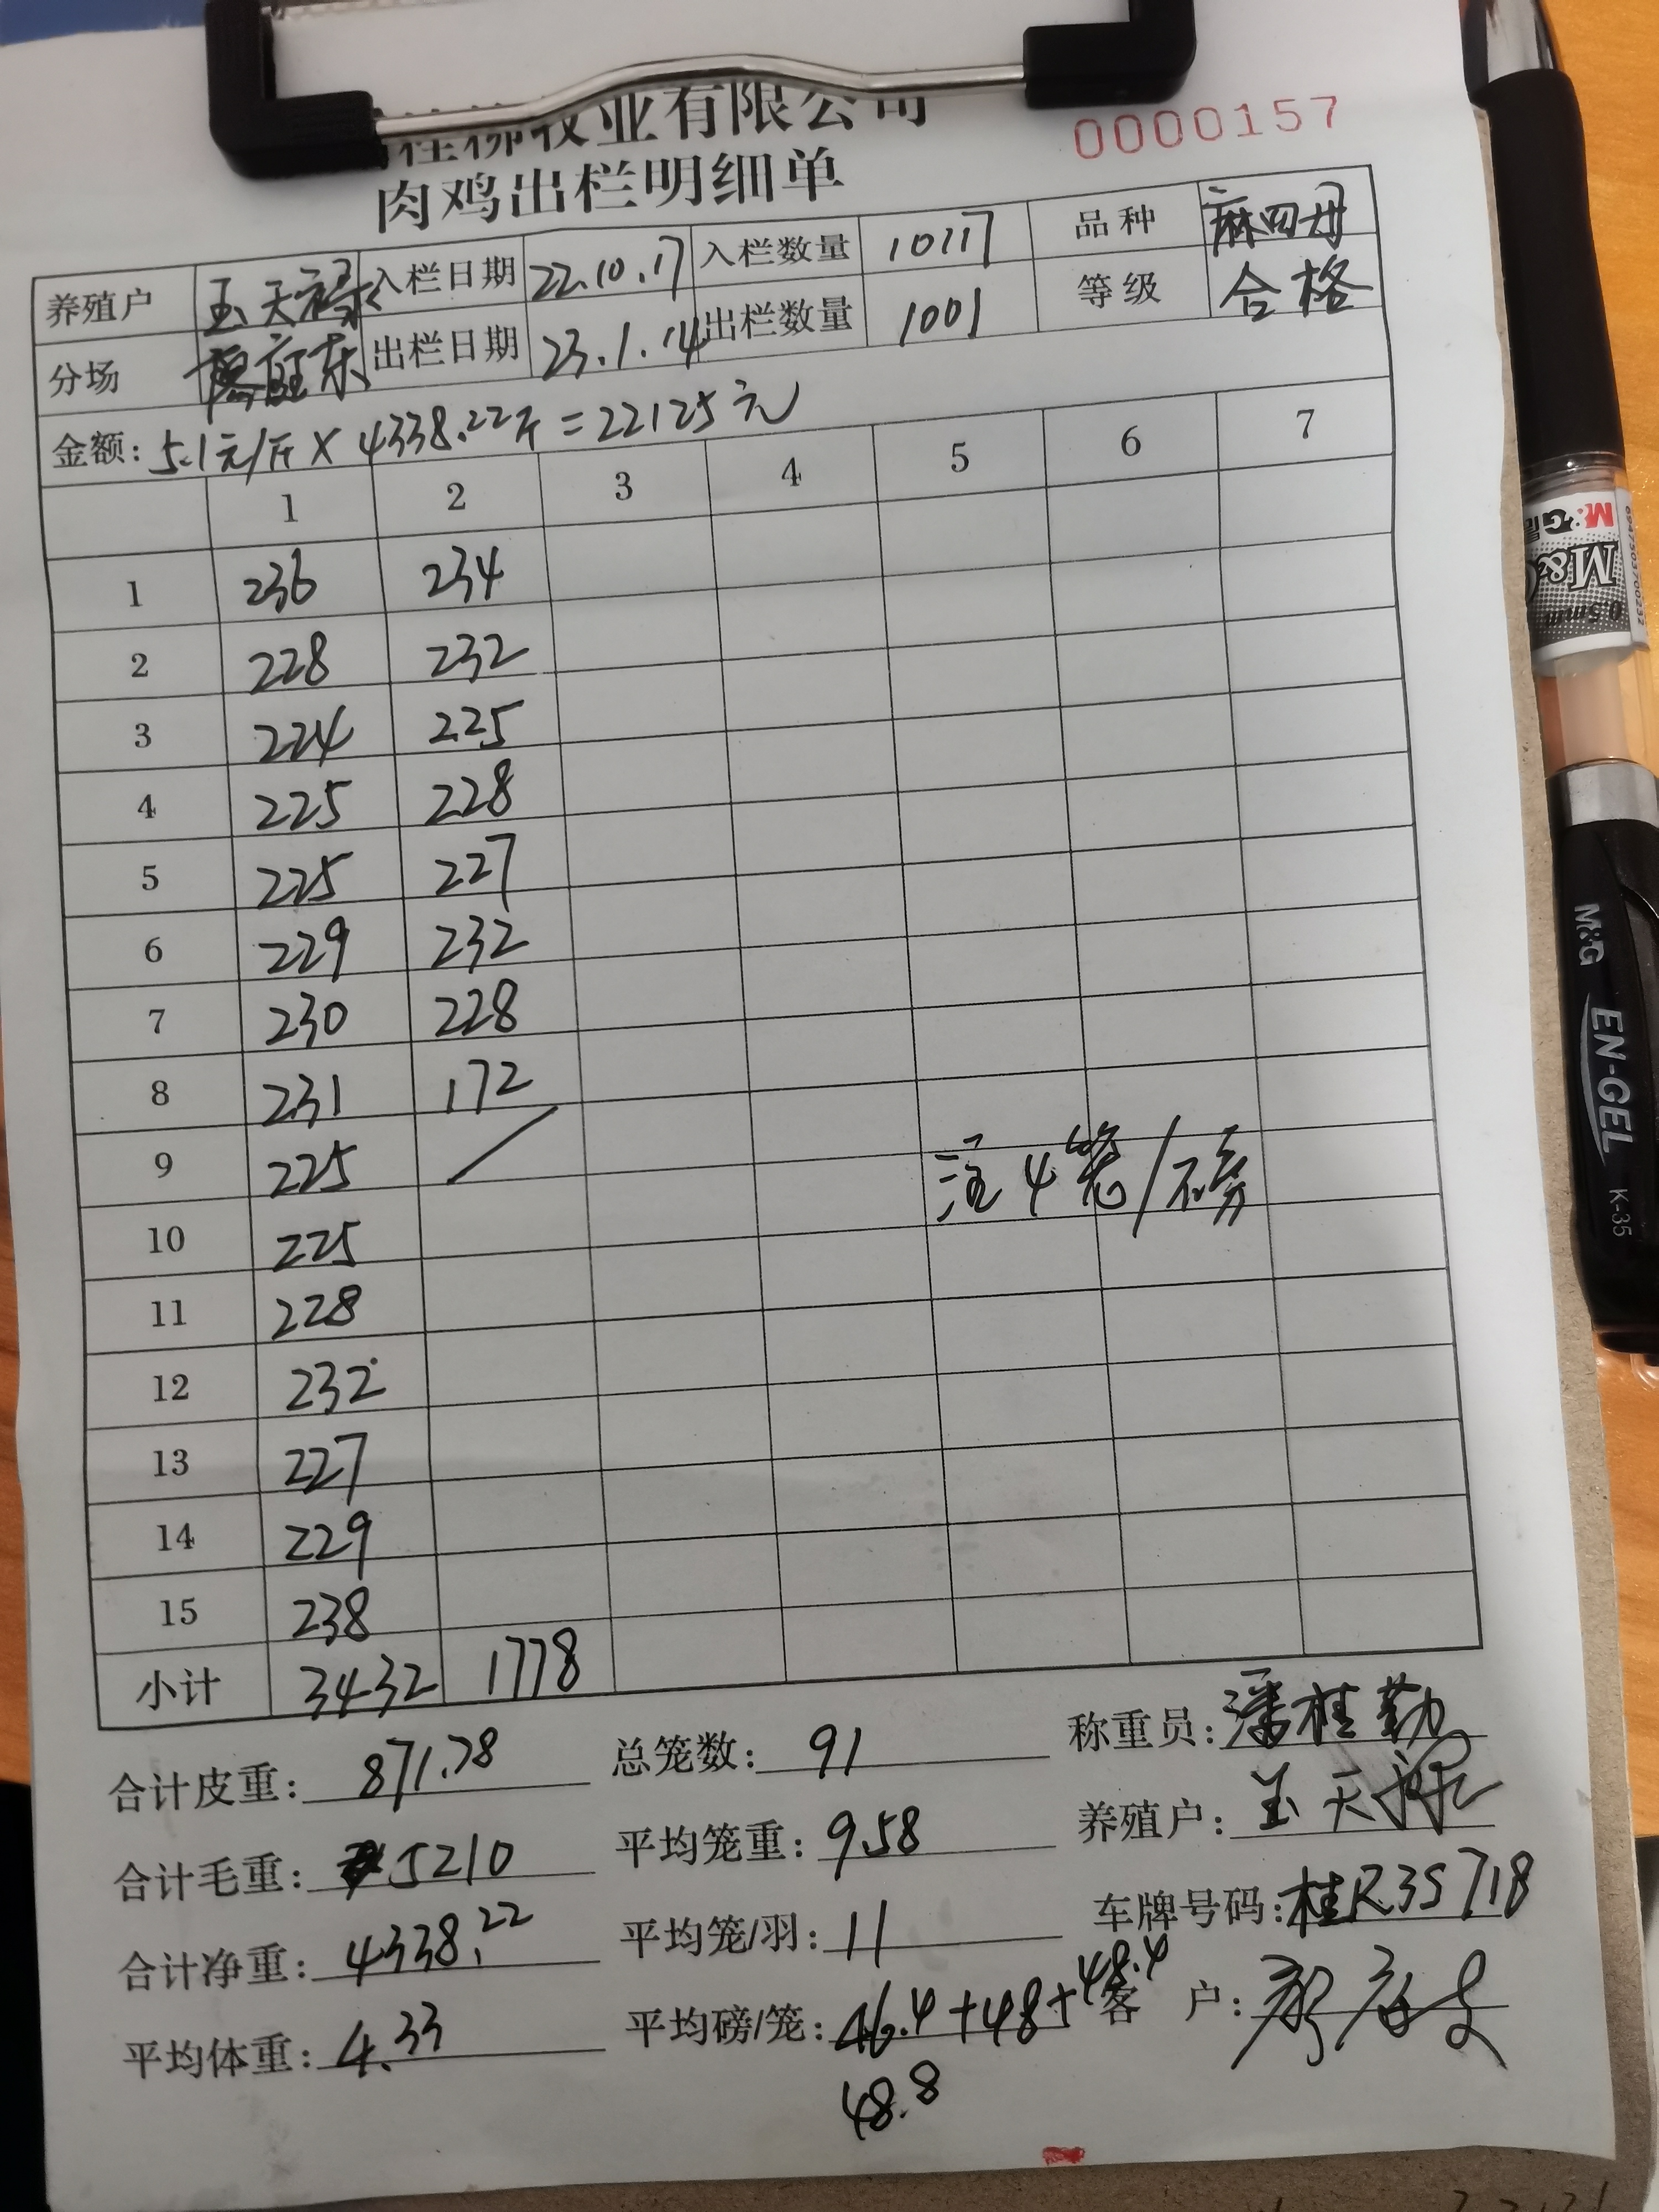 牧业有限公司
0000157
肉鸡出栏明细单
养殖户 玉天禄 入栏日期 22.10.17 入栏数量 10117 品种 麻四母
分场 出栏日期 23.1.14 出栏数量 1001 等级 合格
金额: 5.1元/斤 × 4338.22斤 = 22125元
1 2 3 4 5 6 7
1 236 234
2 228 232
3 224 225
4 225 228
5 225 227
6 229 232
7 230 228
8 231 172
9 225 /
注4笼/磅
10 225
11 228
12 232
13 227
14 229
15 238
小计 3432 1778
合计皮重: 871.78 总笼数: 91 称重员: 潘桂勤
合计毛重: 5210 平均笼重: 9.58 养殖户: 玉天禄
合计净重: 4338.22 平均笼/羽: 11 车牌号码: 桂R35718
平均体重: 4.33 平均磅/笼: 46.4+48+48.4 客户:
48.8
M&G
0.5mm
6947503700232
M&G EN-GEL K-35